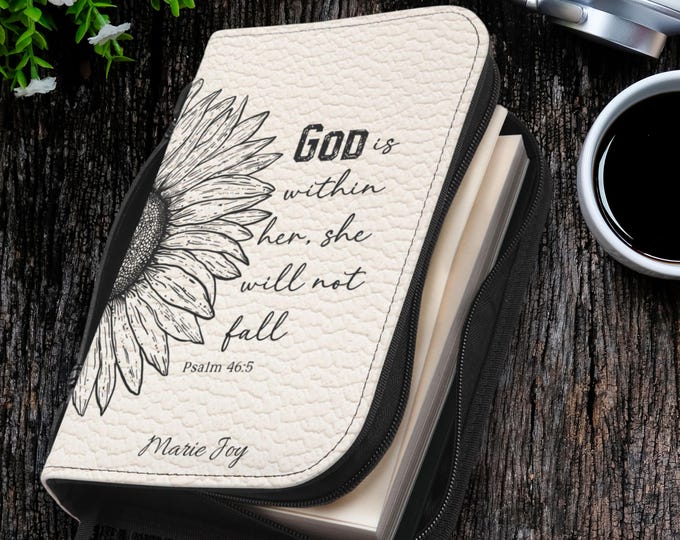 GOD is
within
her, she
will not
fall
Psalm 46:5
Marie Joy